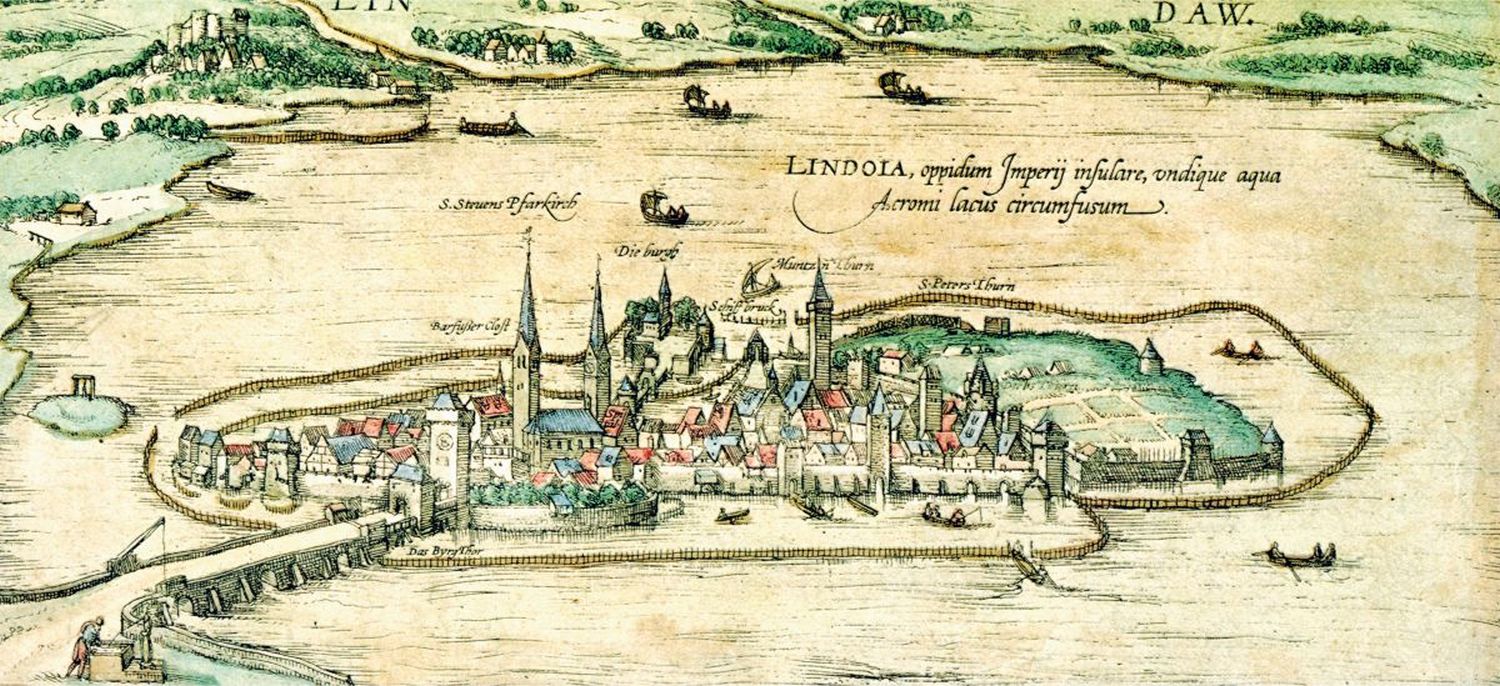 LIN DAW.
LINDOIA, oppidum Imperij insulare, vndique aqua
Acromi lacus circumfusum.
S. Steuens Pfarkirch
Die burgh
Muntz n Thurn
S. Peters Thurn
Schiff bruck
Barfusser Clost
Das Byrg Thor